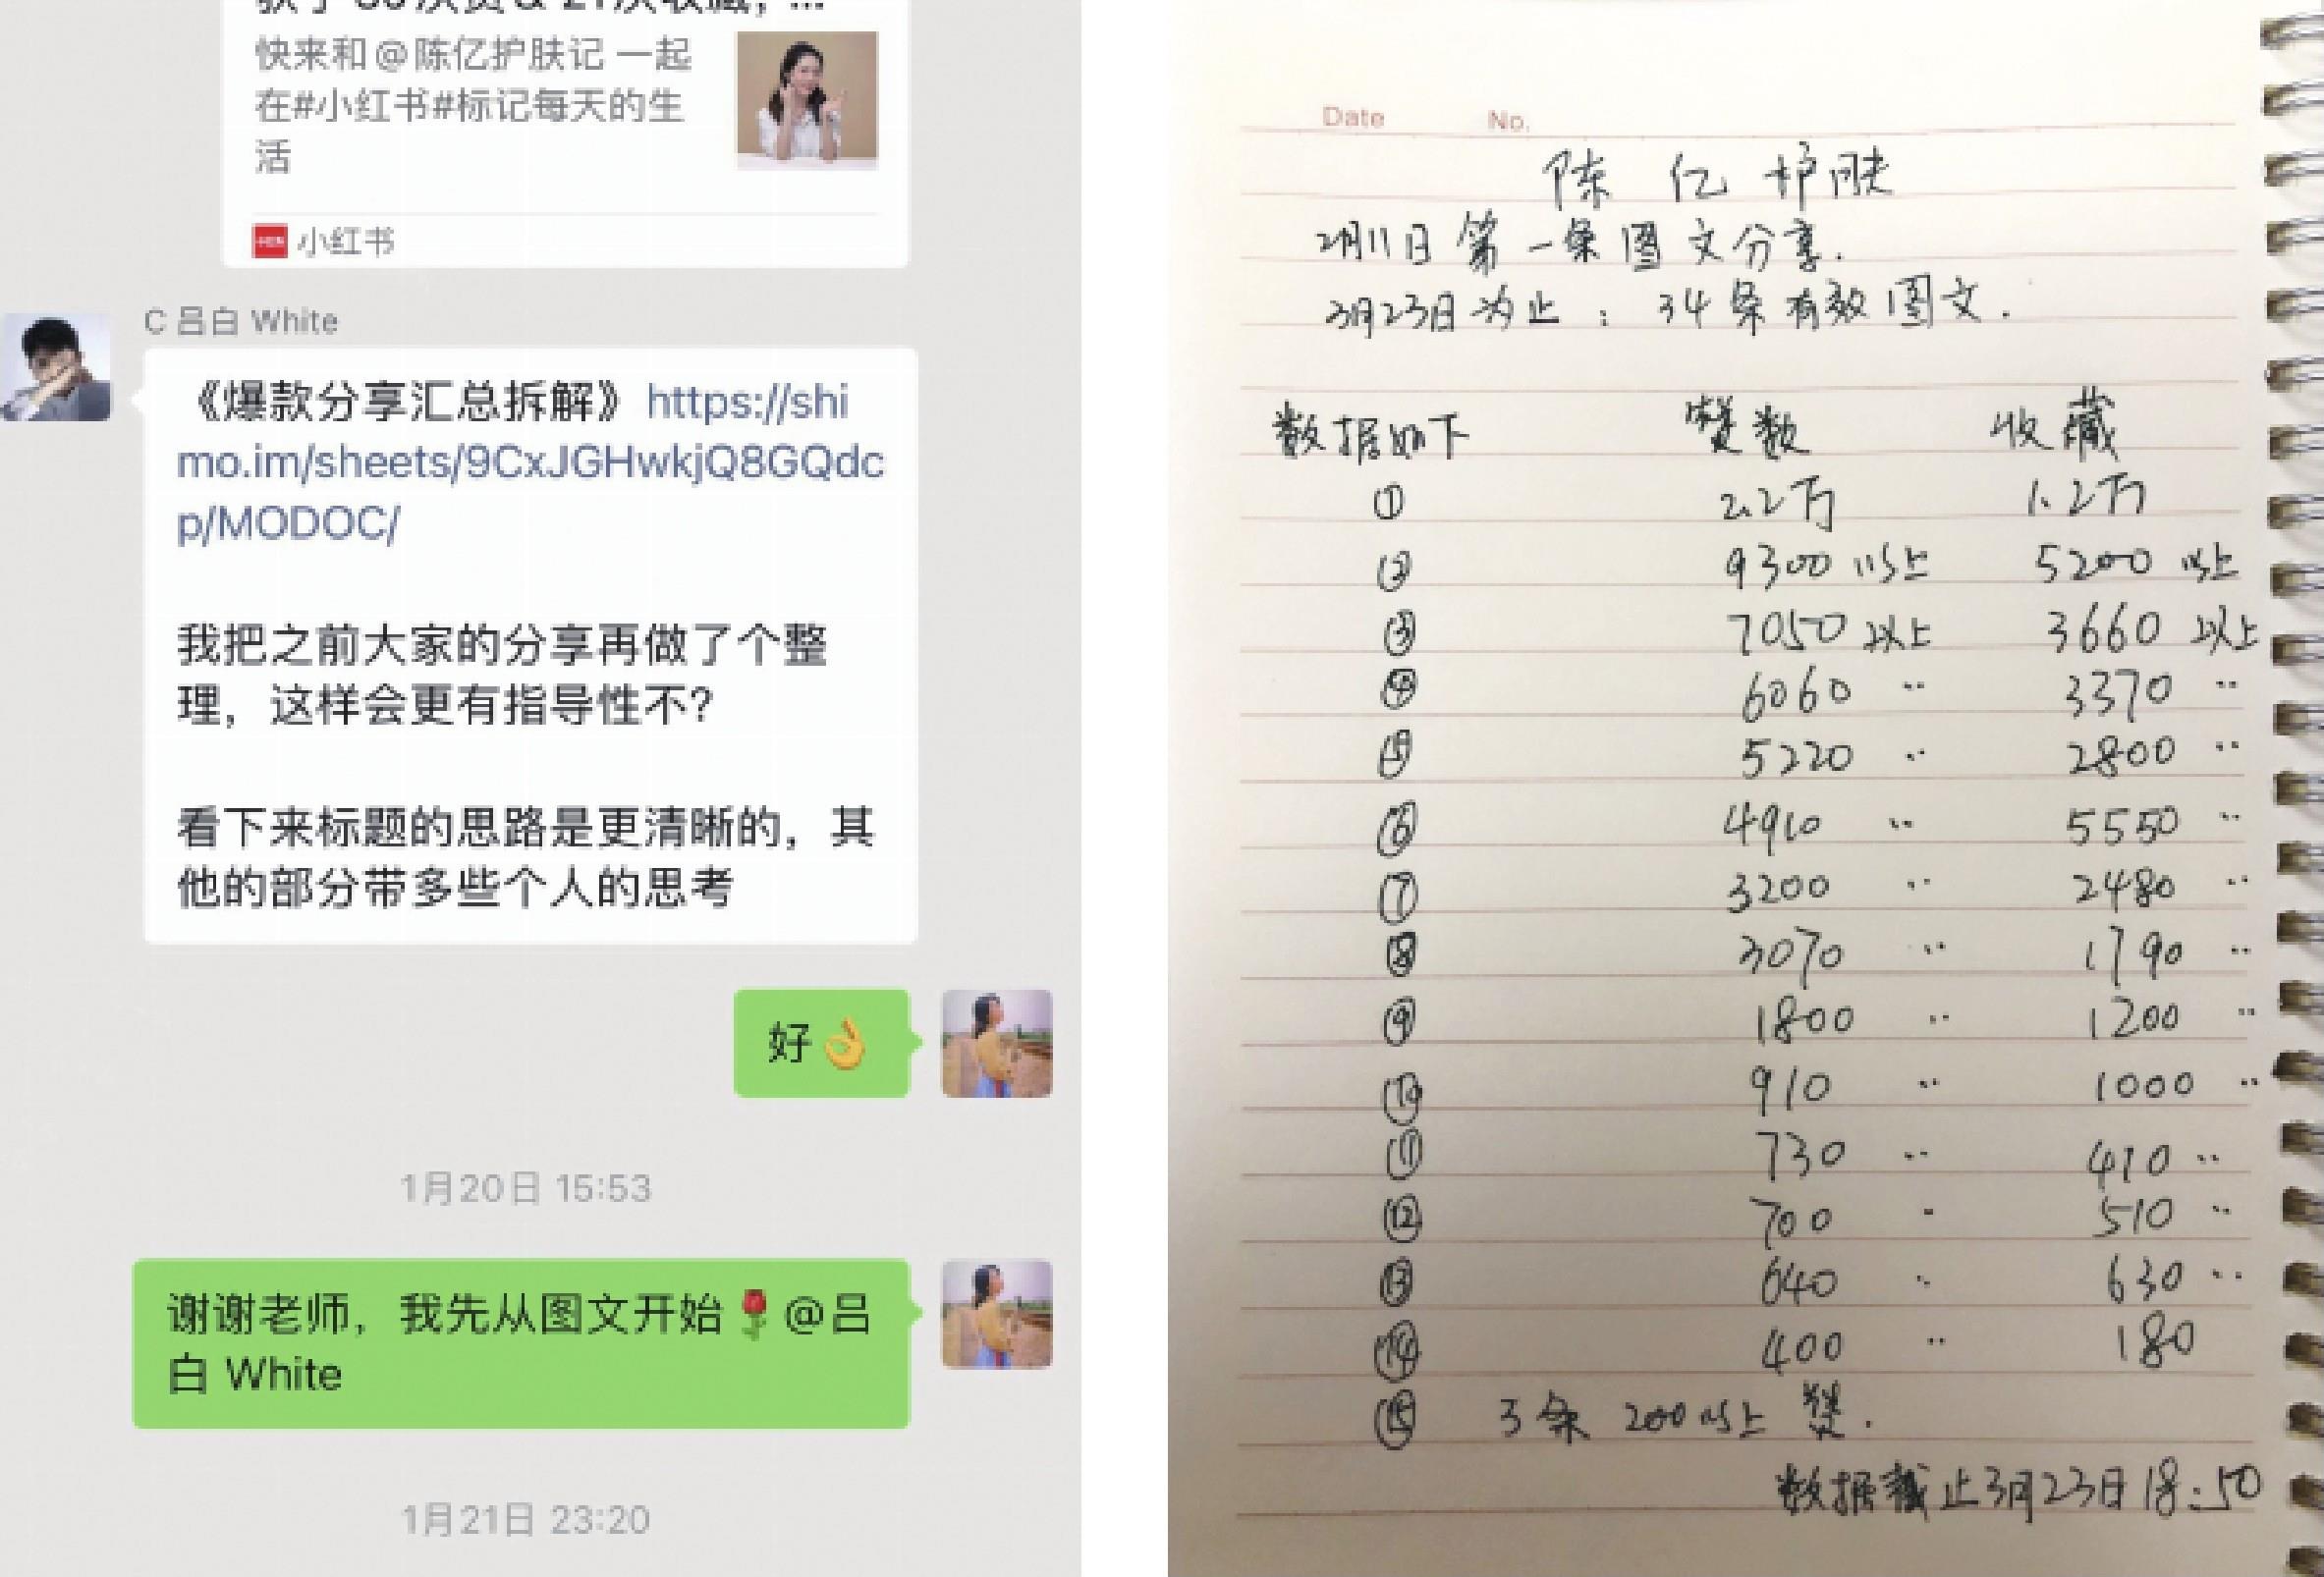 快来和@陈亿护肤记 一起
在#小红书#标记每天的生
活
小红书
C 吕白 White
《爆款分享汇总拆解》https://shi
mo.im/sheets/9CxJGHwkjQ8GQdc
p/MODOC/
我把之前大家的分享再做了个整
理，这样会更有指导性不？
看下来标题的思路是更清晰的，其
他的部分带多些个人的思考
好👌
1月20日 15:53
谢谢老师，我先从图文开始🌹@吕
白 White
1月21日 23:20
Date No.
陈亿护肤
2月11日第一条图文分享.
3月23日为止：34条有效图文.
数据如下 赞数 收藏
① 2.2万 1.2万
② 9300以上 5200以上
③ 7050以上 3660以上
④ 6060 ·· 3370 ··
⑤ 5220 ·· 2800 ··
⑥ 4910 ·· 5550 ··
⑦ 3200 ·· 2480 ··
⑧ 3070 ·· 1790 ··
⑨ 1800 ·· 1200 ··
⑩ 910 ·· 1000 ··
⑪ 730 ·· 410 ··
⑫ 700 · 510 ··
⑬ 640 ·· 630 ··
⑭ 400 ·· 180
⑮ 3条 200以上 赞.
数据截止3月23日18:50